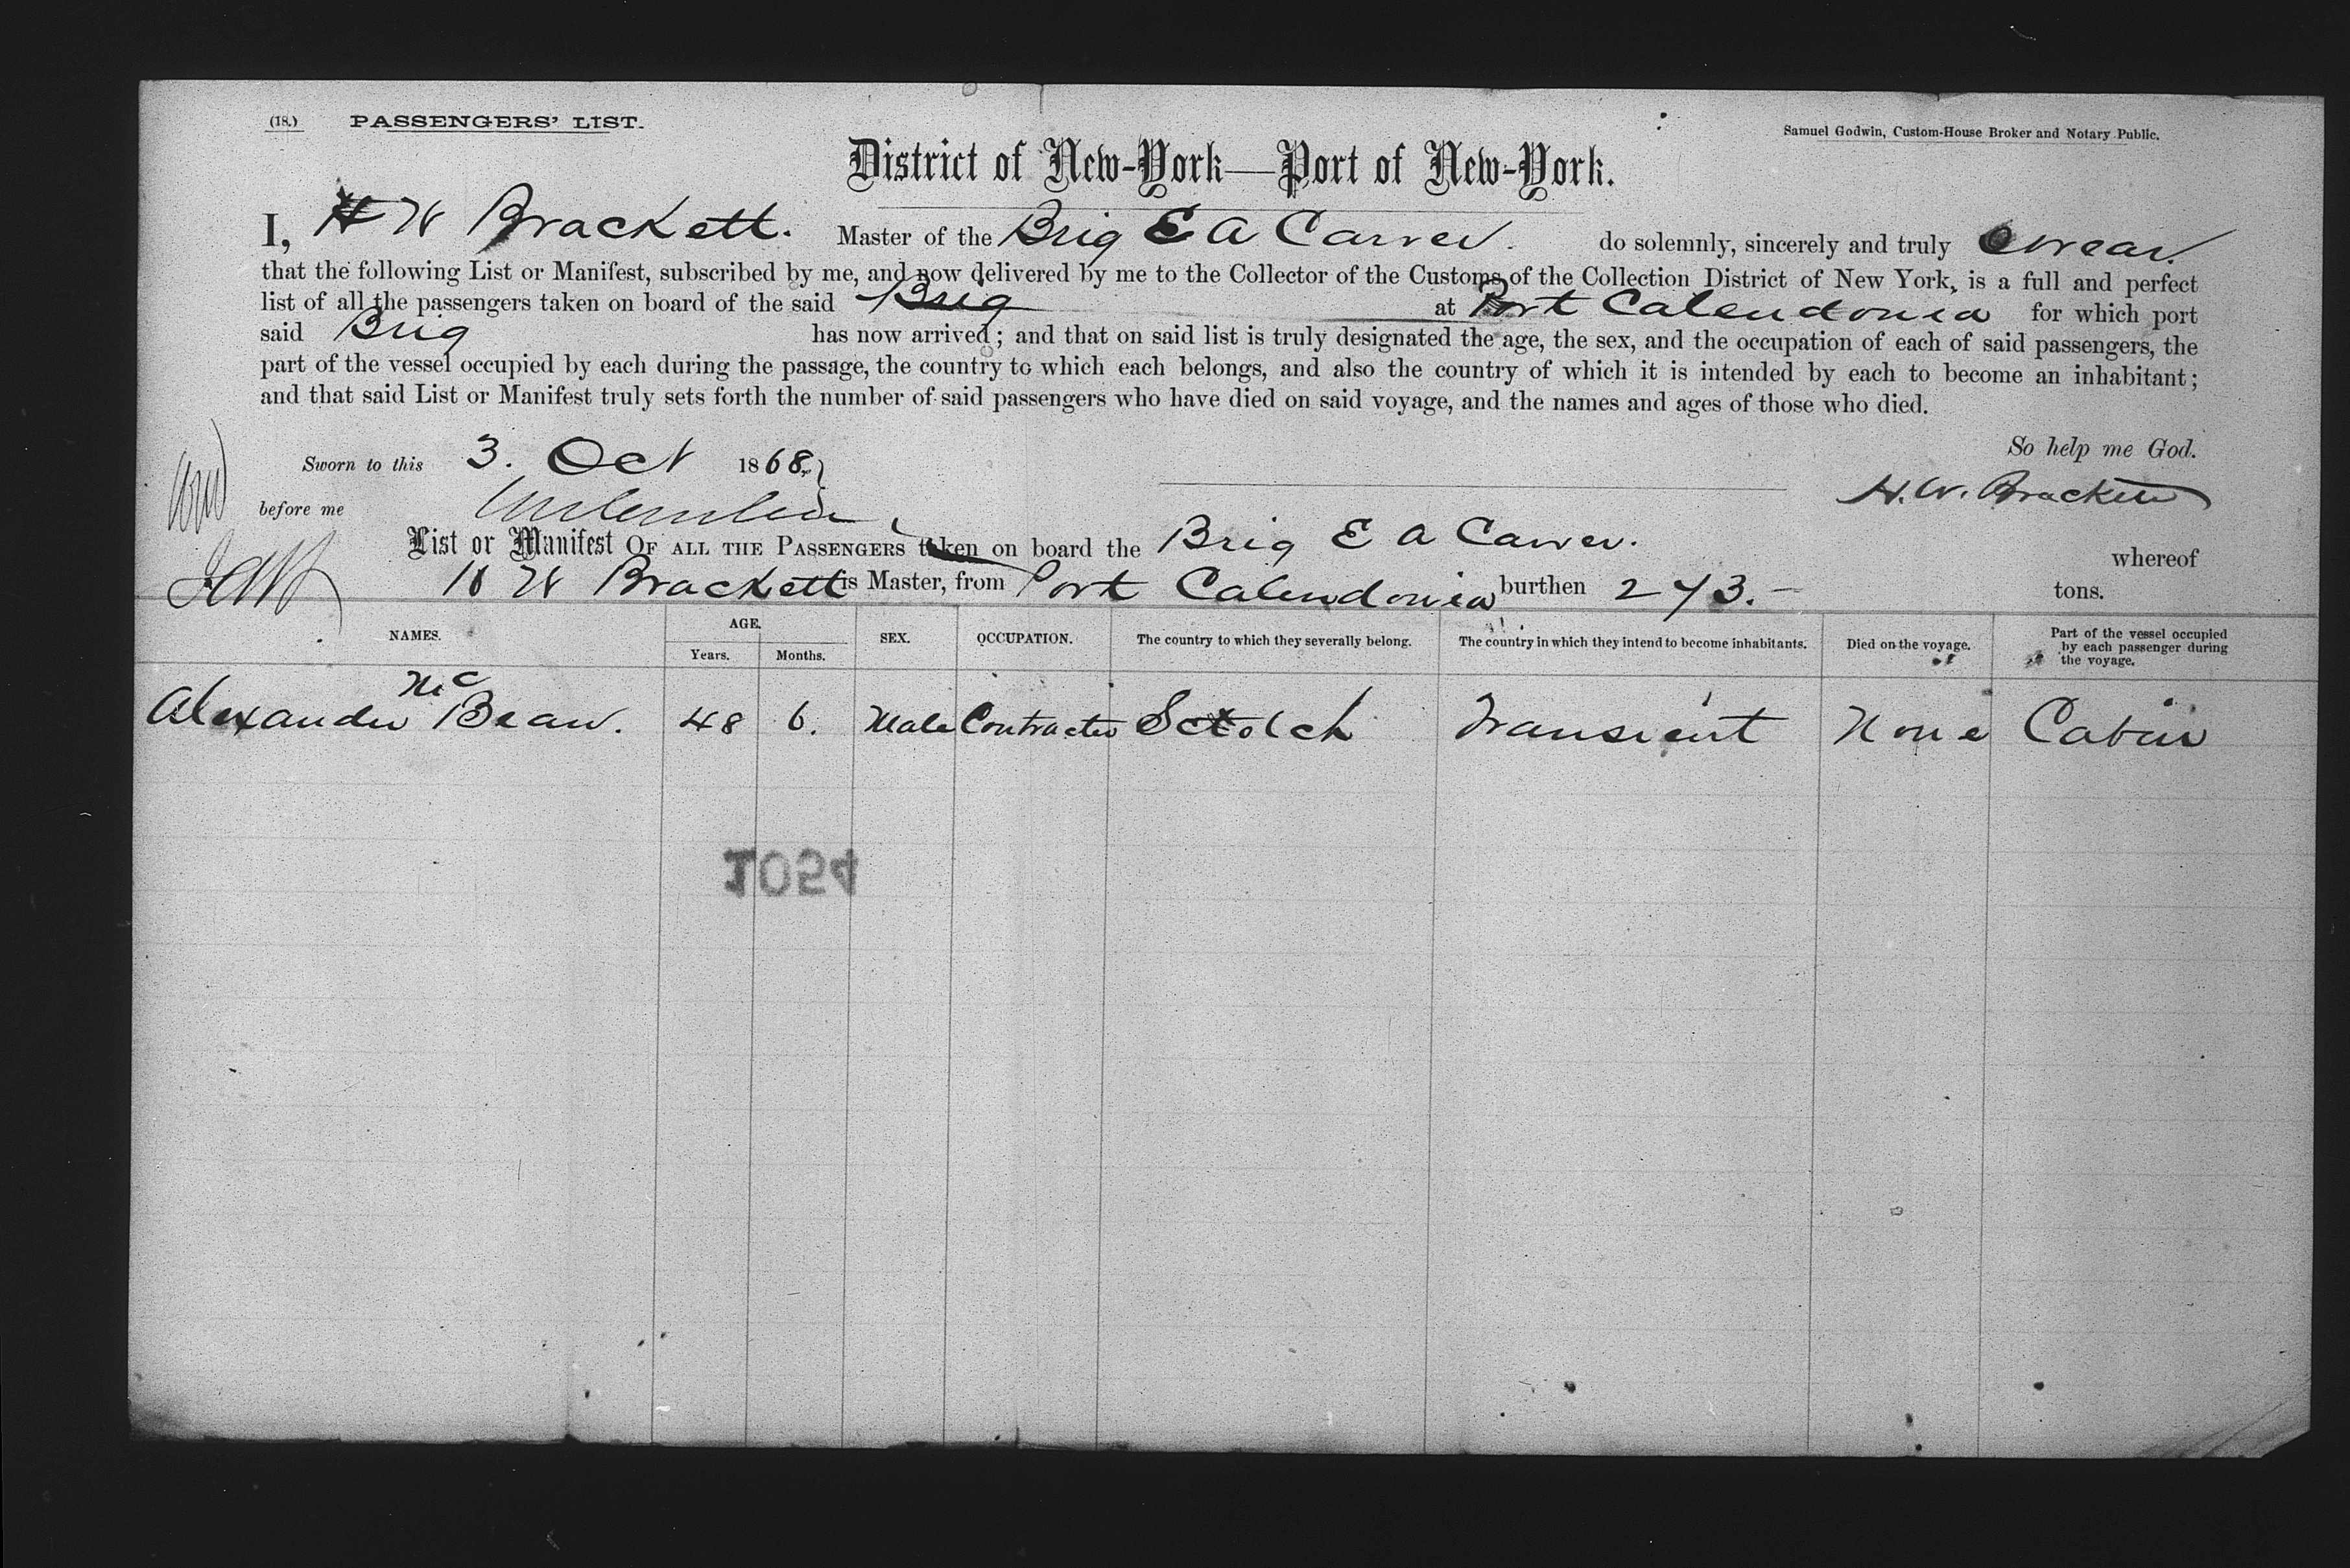 (18.) PASSENGERS' LIST.
Samuel Godwin, Custom-House Broker and Notary Public.
District of New-York—Port of New-York.
I, H W Brackett. Master of the Brig E A Carver. do solemnly, sincerely and truly swear.
that the following List or Manifest, subscribed by me, and now delivered by me to the Collector of the Customs of the Collection District of New York, is a full and perfect
list of all the passengers taken on board of the said Brig at Port Calendonia for which port
said Brig has now arrived; and that on said list is truly designated the age, the sex, and the occupation of each of said passengers, the
part of the vessel occupied by each during the passage, the country to which each belongs, and also the country of which it is intended by each to become an inhabitant;
and that said List or Manifest truly sets forth the number of said passengers who have died on said voyage, and the names and ages of those who died.
So help me God.
Sworn to this 3. Oct 1868.
H. W. Brackett
before me
List or Manifest OF ALL THE PASSENGERS taken on board the Brig E A Carver. whereof
H W Brackett is Master, from Port Calendonia burthen 273.- tons.
NAMES. AGE. Years. Months. SEX. OCCUPATION. The country to which they severally belong. The country in which they intend to become inhabitants. Died on the voyage. Part of the vessel occupied by each passenger during the voyage.
Alexander Mc Bean. 48 6. Male Contractor Scotch Transient None Cabin
1054